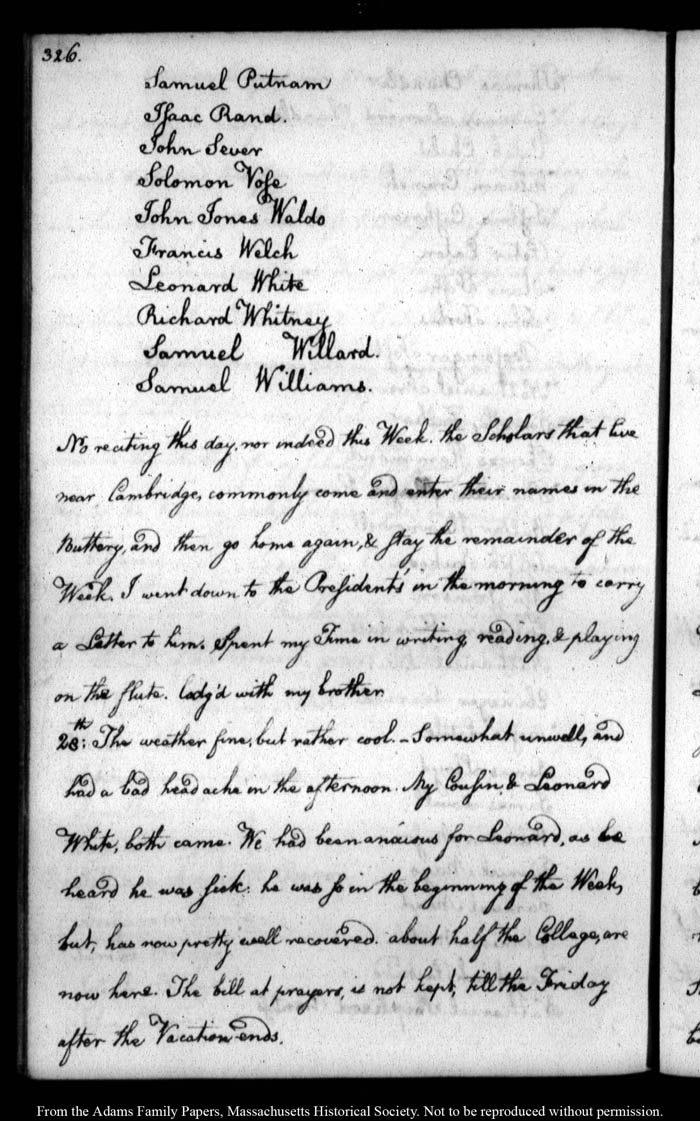 326.
Samuel Putnam
Isaac Rand.
John Sever
Solomon Vose
John Jones Waldo
Francis Welch
Leonard White
Richard Whitney
Samuel Willard.
Samuel Williams.
No reciting this day, nor indeed this Week. the Scholars that live
near Cambridge, commonly come and enter their names in the
Buttery, and then go home again, & stay the remainder of the
Week. I went down to the President's in the morning to carry
a Letter to him. Spent my Time in writing, reading, & playing
on the flute. lodg'd with my brother
28th: The weather fine, but rather cool. - Somewhat unwell, and
had a bad head ache in the afternoon. My Cousin, & Leonard
White, both came. We had been anxious for Leonard, as we
heard he was sick: he was so in the beginning of the Week,
but, has now pretty well recovered. about half the College, are
now here. The bill at prayers, is not kept, till the Friday
after the Vacation ends.
From the Adams Family Papers, Massachusetts Historical Society. Not to be reproduced without permission.